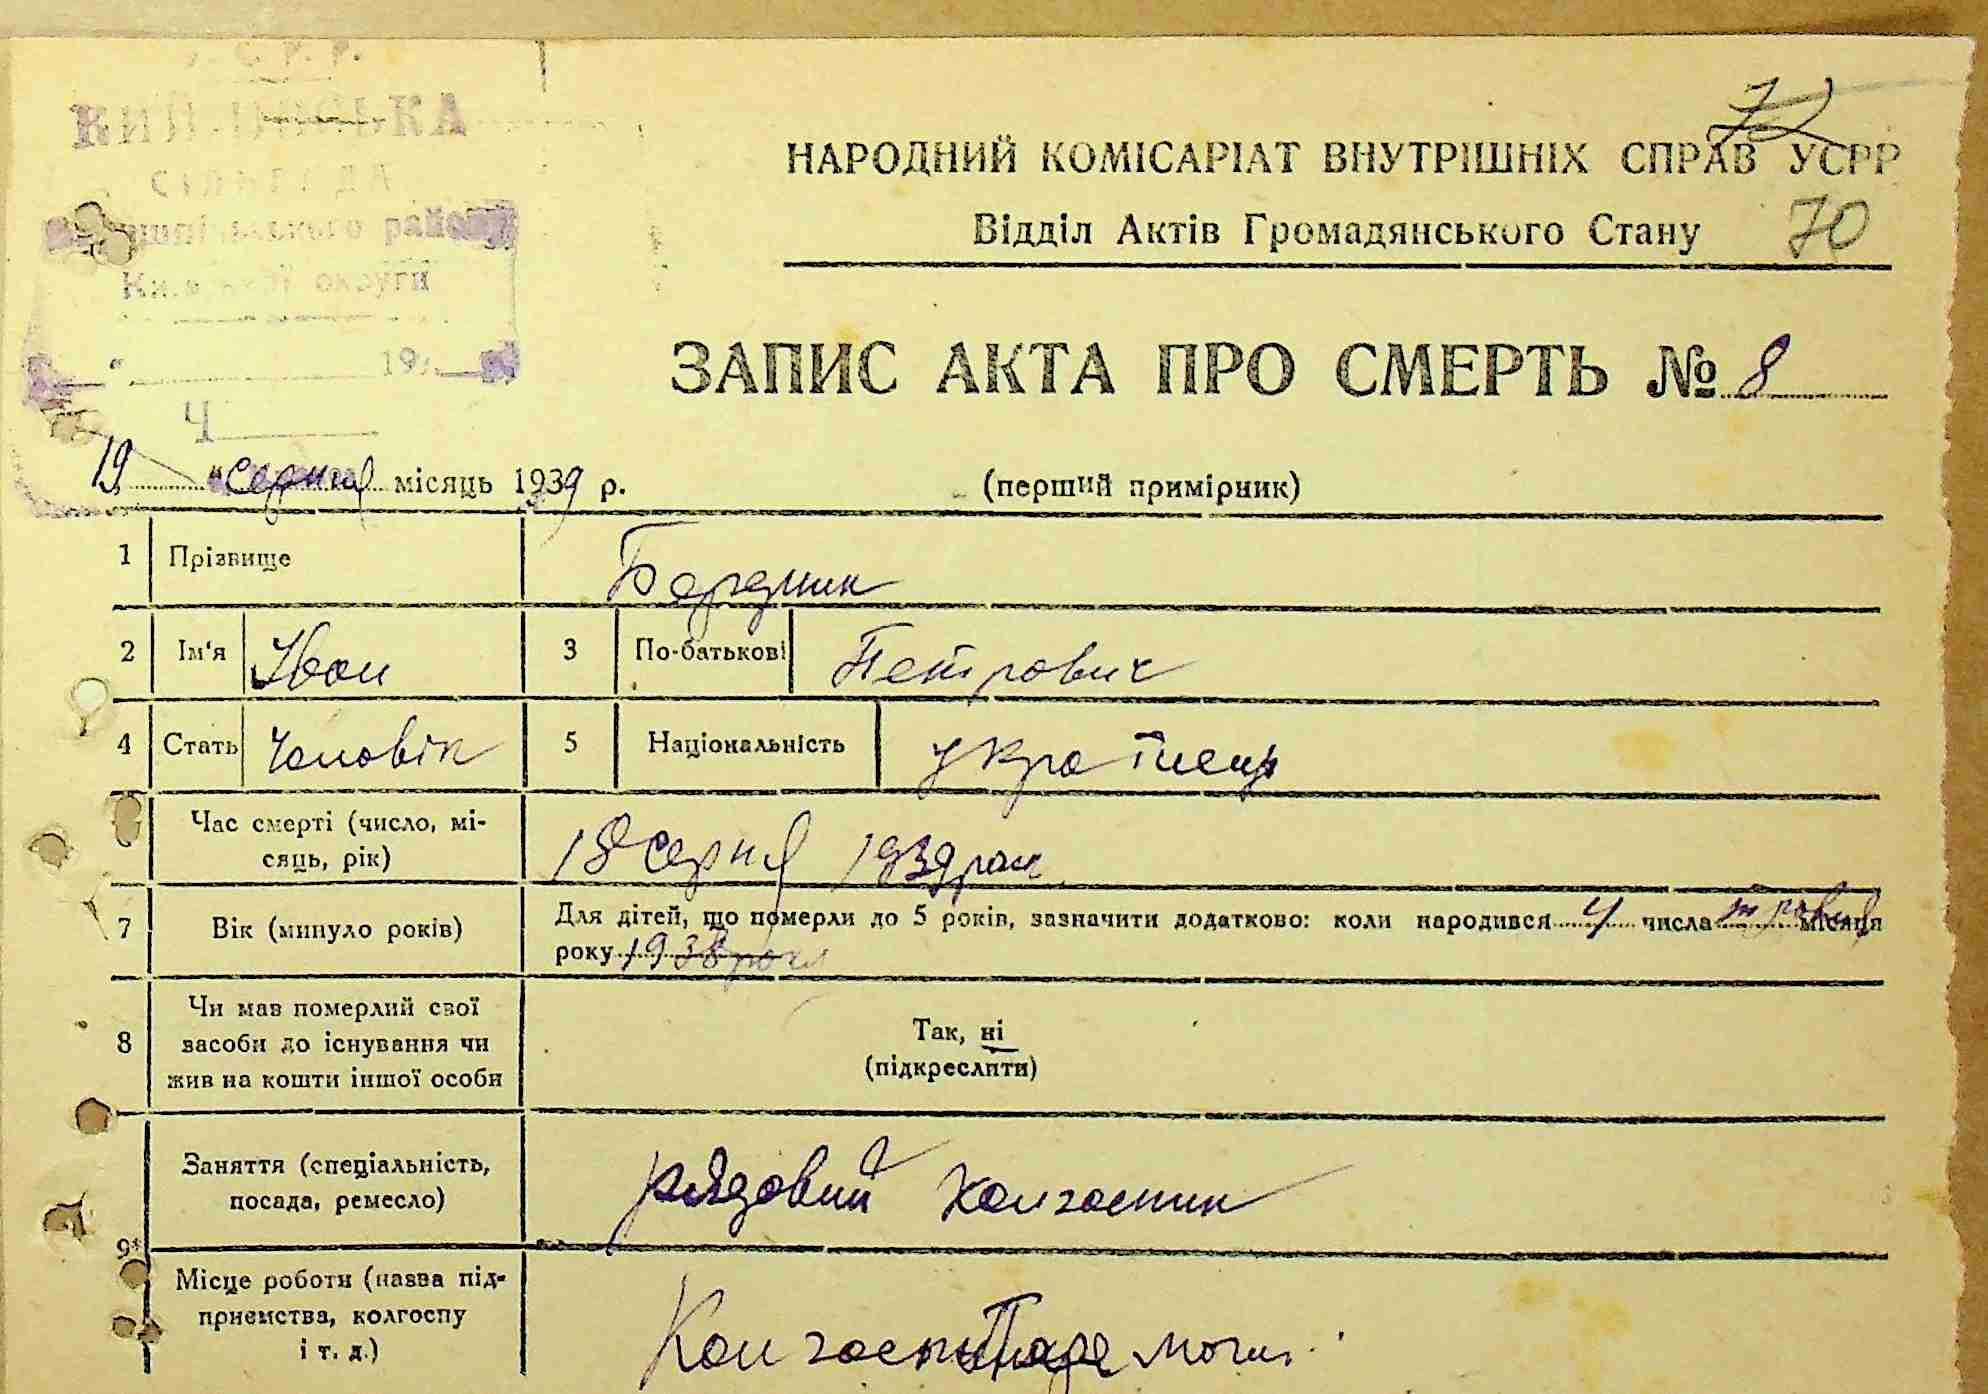 72
НАРОДНИЙ КОМІСАРІАТ ВНУТРІШНІХ СПРАВ УСРР
Відділ Актів Громадянського Стану 70
району
округи
19
ЗАПИС АКТА ПРО СМЕРТЬ № 8
Ч
19 " серпня місяць 1939 р. (перший примірник)
1 Прізвище Бередник
2 Ім'я Іван 3 По-батькові Петрович
4 Стать Чоловік 5 Національність українець
Час смерті (число, мі-
сяць, рік) 18 серпня 1939 рок
7 Вік (минуло років) Для дітей, що померли до 5 років, зазначити додатково: коли народився 4 числа травня місяця
року 1938 року
8 Чи мав померлий свої
засоби до існування чи
жив на кошти іншої особи
Так, ні
(підкреслити)
Заняття (спеціальність,
посада, ремесло) рядовий колгоспник
9*
Місце роботи (назва під-
приємства, колгоспу
і т. д.)
Колгосп Перемоги